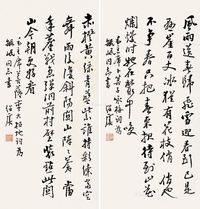 風雨送春歸飛雪迎春到已是
懸崖百丈冰猶有花枝俏俏也
不爭春只把春來報待到山花
爛漫時她在叢中笑
毛主席卜算子詠梅詞為
同志書
赤橙黃綠青藍紫誰持彩練當空
舞雨後復斜陽關山陣陣蒼當
年鏖戰急彈洞前村壁裝點此關
山今朝更好看
毛主席菩薩蠻大柏地詞為
同志書